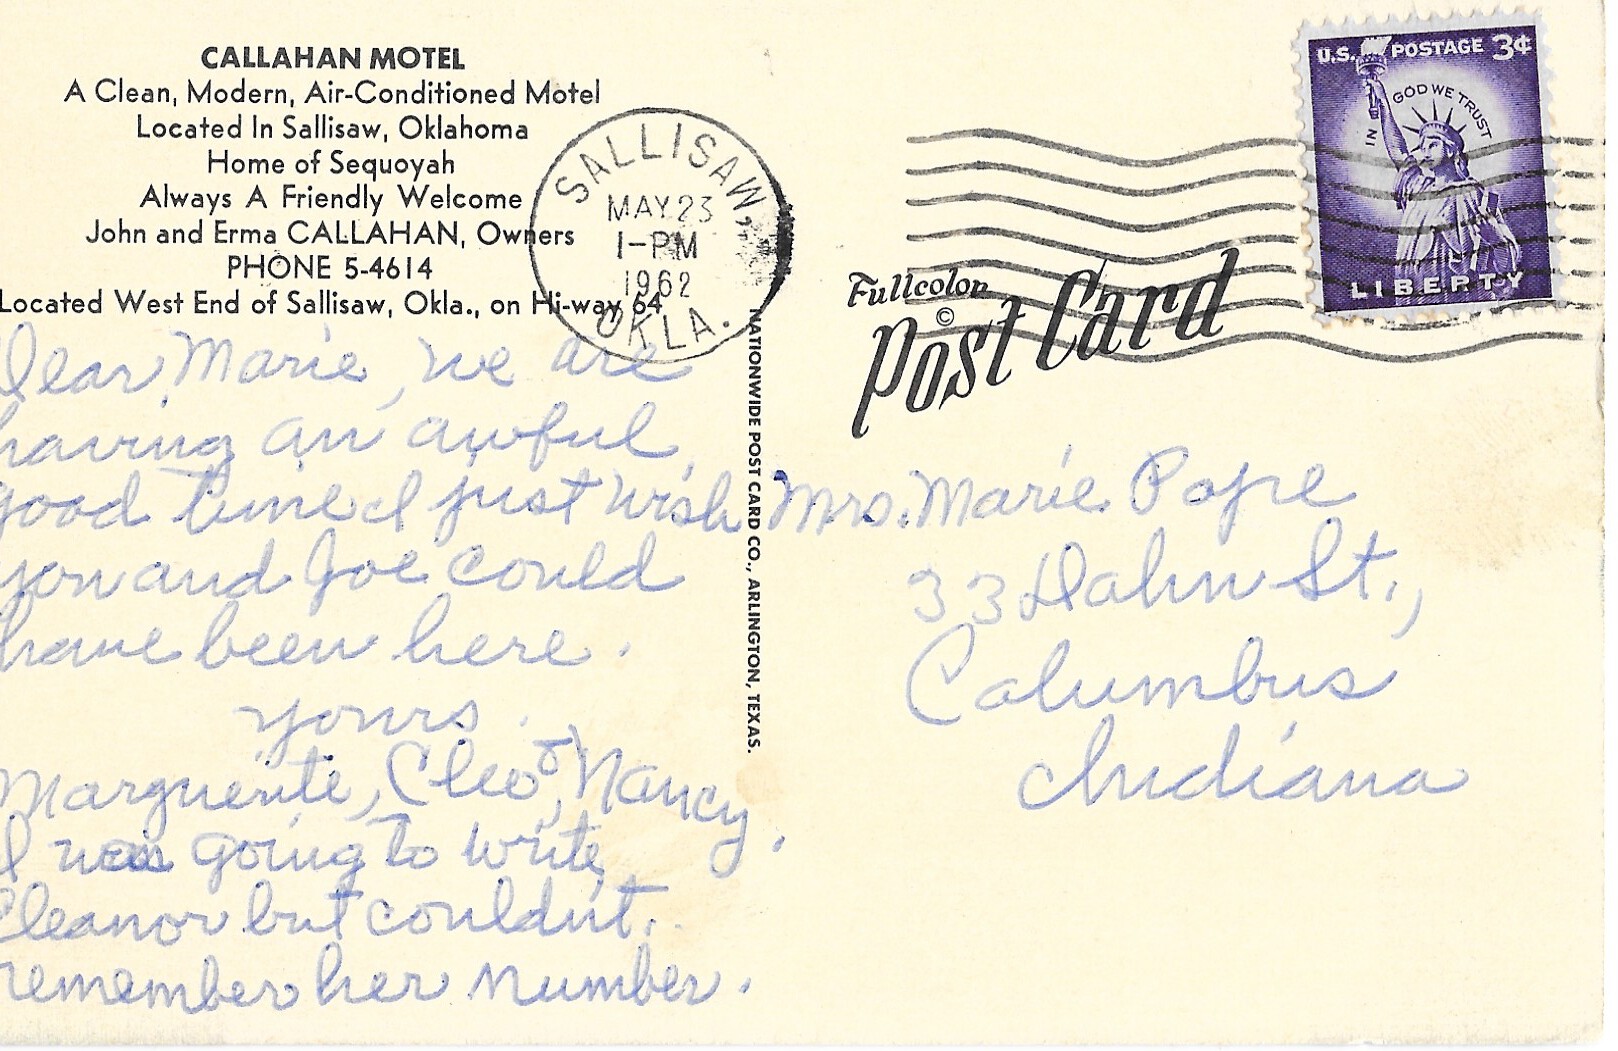 CALLAHAN MOTEL
A Clean, Modern, Air-Conditioned Motel
Located In Sallisaw, Oklahoma
Home of Sequoyah
Always A Friendly Welcome
John and Erma CALLAHAN, Owners
PHONE 5-4614
Located West End of Sallisaw, Okla., on Hi-way 64
SALLISAW,
MAY 23
1-PM
1962
OKLA.
U.S. POSTAGE 3¢
IN GOD WE TRUST
LIBERTY
Fullcolor
Post Card
©
NATIONWIDE POST CARD CO., ARLINGTON, TEXAS.
Dear Marie, we are
having an awful
good time I just wish
you and Joe could
have been here.
yours.
Marguerite, Cleo, & Nancy.
I was going to write
Eleanor but couldnt.
remember her number.
Mrs. Marie Pope
33 Dahn St.,
Columbus
Indiana